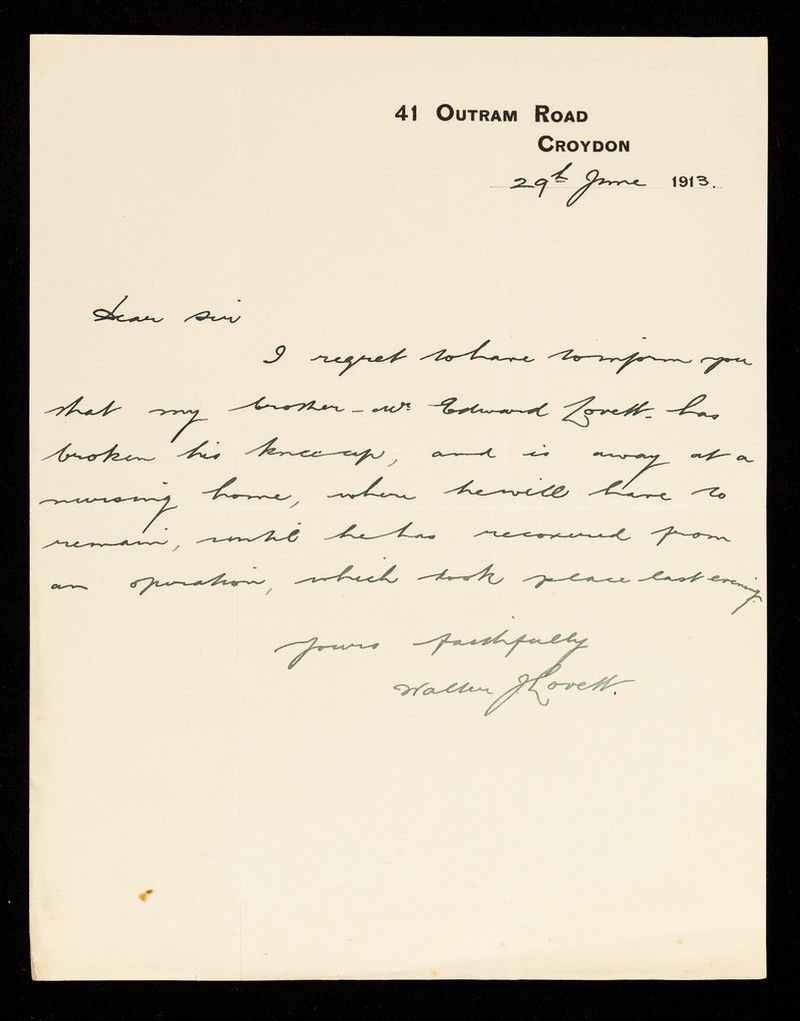 41 OUTRAM ROAD
CROYDON
29th June 1913.
Dear Sir
I regret to have to inform you
that my brother - Mr. Edward Lovett - has
broken his kneecap, and is away at a
nursing home, where he will have to
remain, until he has recovered from
an operation, which took place last evening.
Yours faithfully
Walter J Lovett.